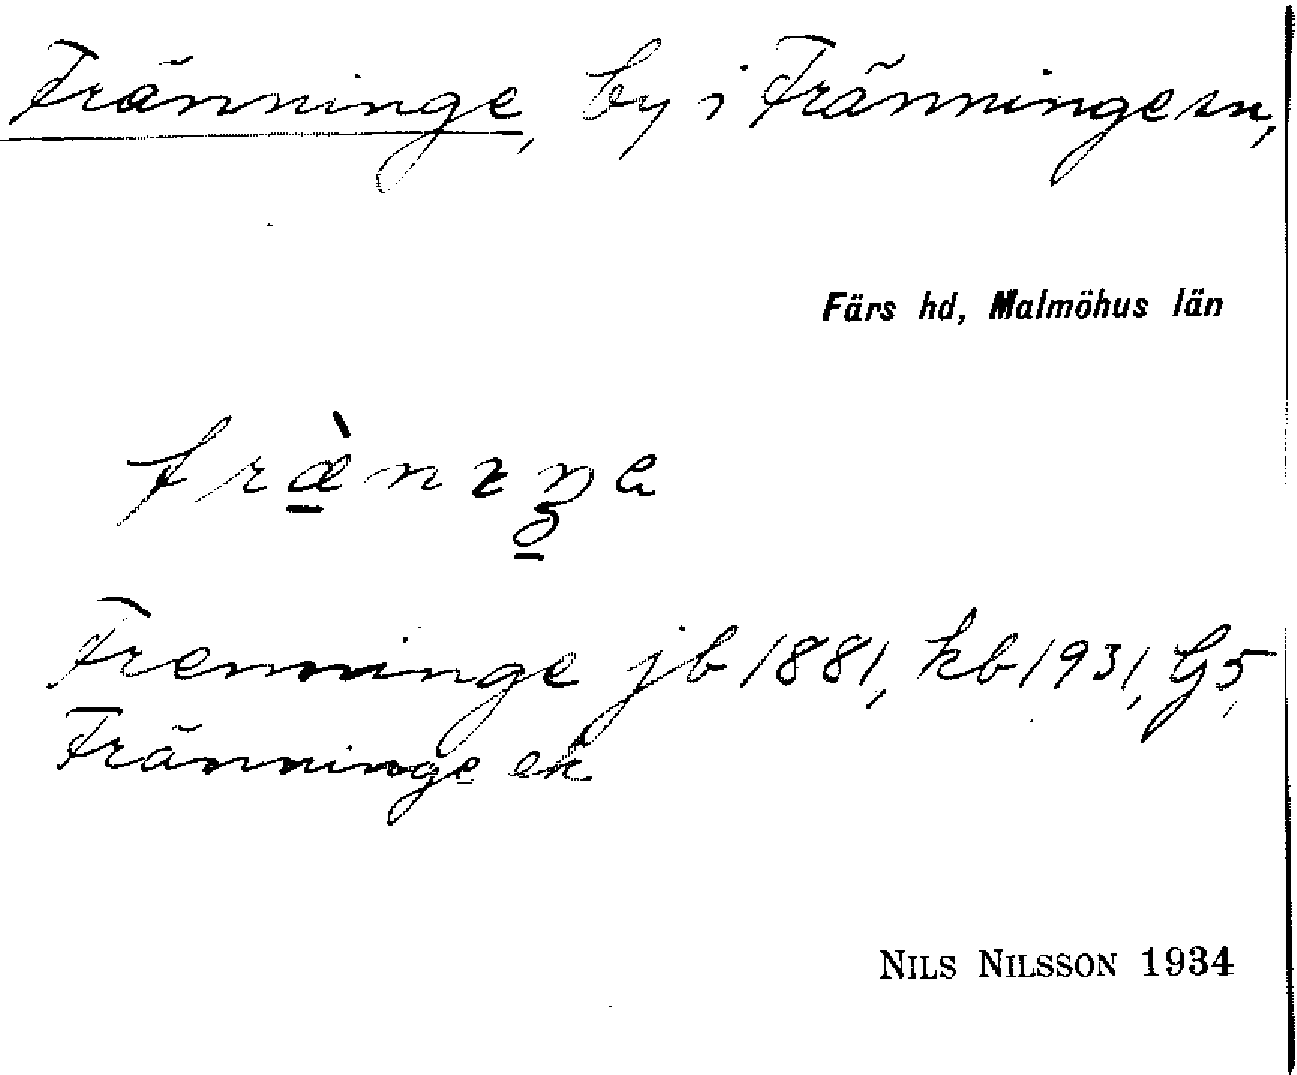 Fränninge, by i Fränninge sn,
Färs hd, Malmöhus län
fræ̀nɪŋa
Frenninge jb 1881, kb 1931, G5,
Fränninge ek
NILS NILSSON 1934